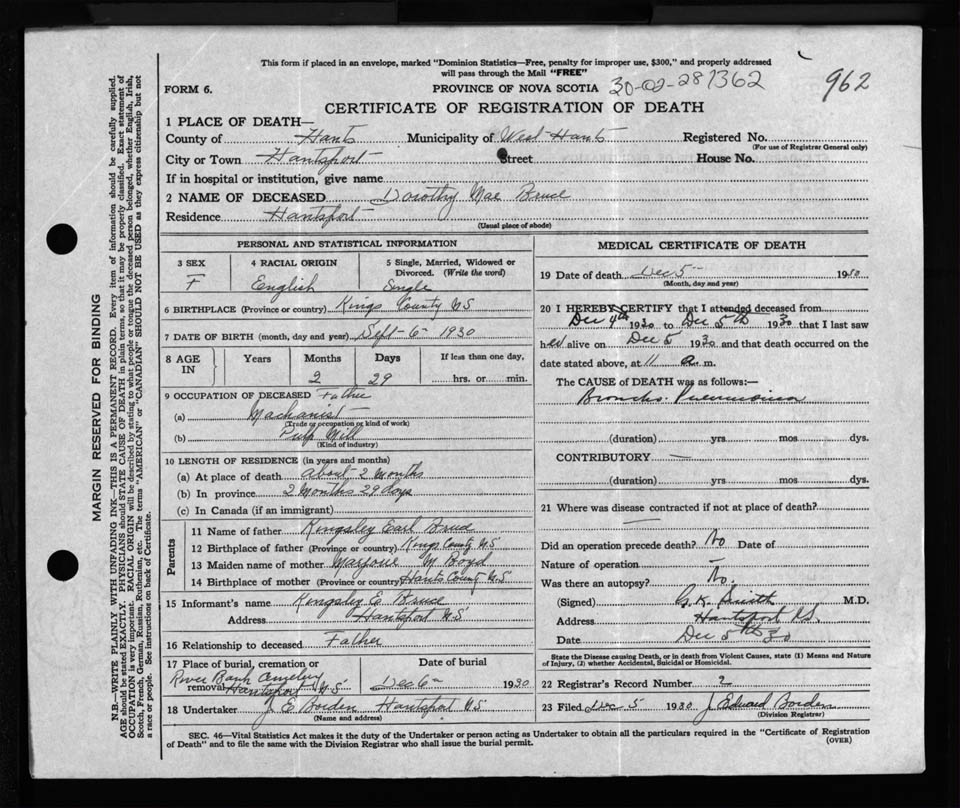 This form if placed in an envelope, marked "Dominion Statistics—Free, penalty for improper use, $300," and properly addressed
will pass through the Mail "FREE"
FORM 6. PROVINCE OF NOVA SCOTIA 30-02-287362 962
CERTIFICATE OF REGISTRATION OF DEATH
1 PLACE OF DEATH—
County of Hants Municipality of West Hants Registered No.
(For use of Registrar General only)
City or Town Hantsport Street House No.
If in hospital or institution, give name
2 NAME OF DECEASED Dorothy Mae Bruce
Residence Hantsport
(Usual place of abode)
PERSONAL AND STATISTICAL INFORMATION
3 SEX 4 RACIAL ORIGIN 5 Single, Married, Widowed or
Divorced. (Write the word)
F English Single
6 BIRTHPLACE (Province or country) Kings County NS
7 DATE OF BIRTH (month, day and year) Sept 6 1930
8 AGE IN Years Months Days If less than one day,
2 29 hrs. or min.
9 OCCUPATION OF DECEASED Father
(a) Machanist
(Trade or occupation or kind of work)
(b) Pulp Mill
(Kind of industry)
10 LENGTH OF RESIDENCE (in years and months)
(a) At place of death about 2 months
(b) In province 2 months 29 days
(c) In Canada (if an immigrant)
Parents
11 Name of father Kingsley Earl Bruce
12 Birthplace of father (Province or country) Kings County NS
13 Maiden name of mother Marjorie M Boyd
14 Birthplace of mother (Province or country) Hants County N.S
15 Informant's name Kingsley E Bruce
Address Hantsport NS
16 Relationship to deceased Father
17 Place of burial, cremation or Date of burial
River Bank
removal Hantsport N.S Dec 6 1930
18 Undertaker J. E Borden Hantsport NS
(Name and address)
MEDICAL CERTIFICATE OF DEATH
19 Date of death Dec 5 1930
(Month, day and year)
20 I HEREBY CERTIFY that I attended deceased from
Dec 4th 1930 to Dec 5th 1930 that I last saw
her alive on Dec 5 1930 and that death occurred on the
date stated above, at 11 a. m.
The CAUSE of DEATH was as follows:—
Broncho. Pneumonia
(duration) yrs mos dys.
CONTRIBUTORY
(duration) yrs. mos. dys.
21 Where was disease contracted if not at place of death?
Did an operation precede death? No Date of
Nature of operation
Was there an autopsy? No.
(Signed) G.K. Smith M.D.
Address Hantsport N.S.
Date Dec 5th 30
State the Disease causing Death, or in death from Violent Causes, state (1) Means and Nature
of Injury, (2) whether Accidental, Suicidal or Homicidal.
22 Registrar's Record Number 2
23 Filed Dec 5 1930 J Edward Borden
(Division Registrar)
SEC. 46—Vital Statistics Act makes it the duty of the Undertaker or person acting as Undertaker to obtain all the particulars required in the "Certificate of Registration
of Death" and to file the same with the Division Registrar who shall issue the burial permit.
(OVER)
MARGIN RESERVED FOR BINDING
N.B.—WRITE PLAINLY WITH UNFADING INK—THIS IS A PERMANENT RECORD. Every item of information should be carefully supplied.
AGE should be stated EXACTLY. PHYSICIANS should STATE CAUSE OF DEATH in plain terms, so that it may be properly classified. Exact statement of
OCCUPATION is very important. RACIAL ORIGIN will be described by stating to what people or tongue the deceased person belonged, whether English, Irish,
Scotch, French, German, Russian, Ruthenian, etc. The terms "AMERICAN" or "CANADIAN" SHOULD NOT BE USED as they express citizenship but not
a race or people. See instructions on back of Certificate.